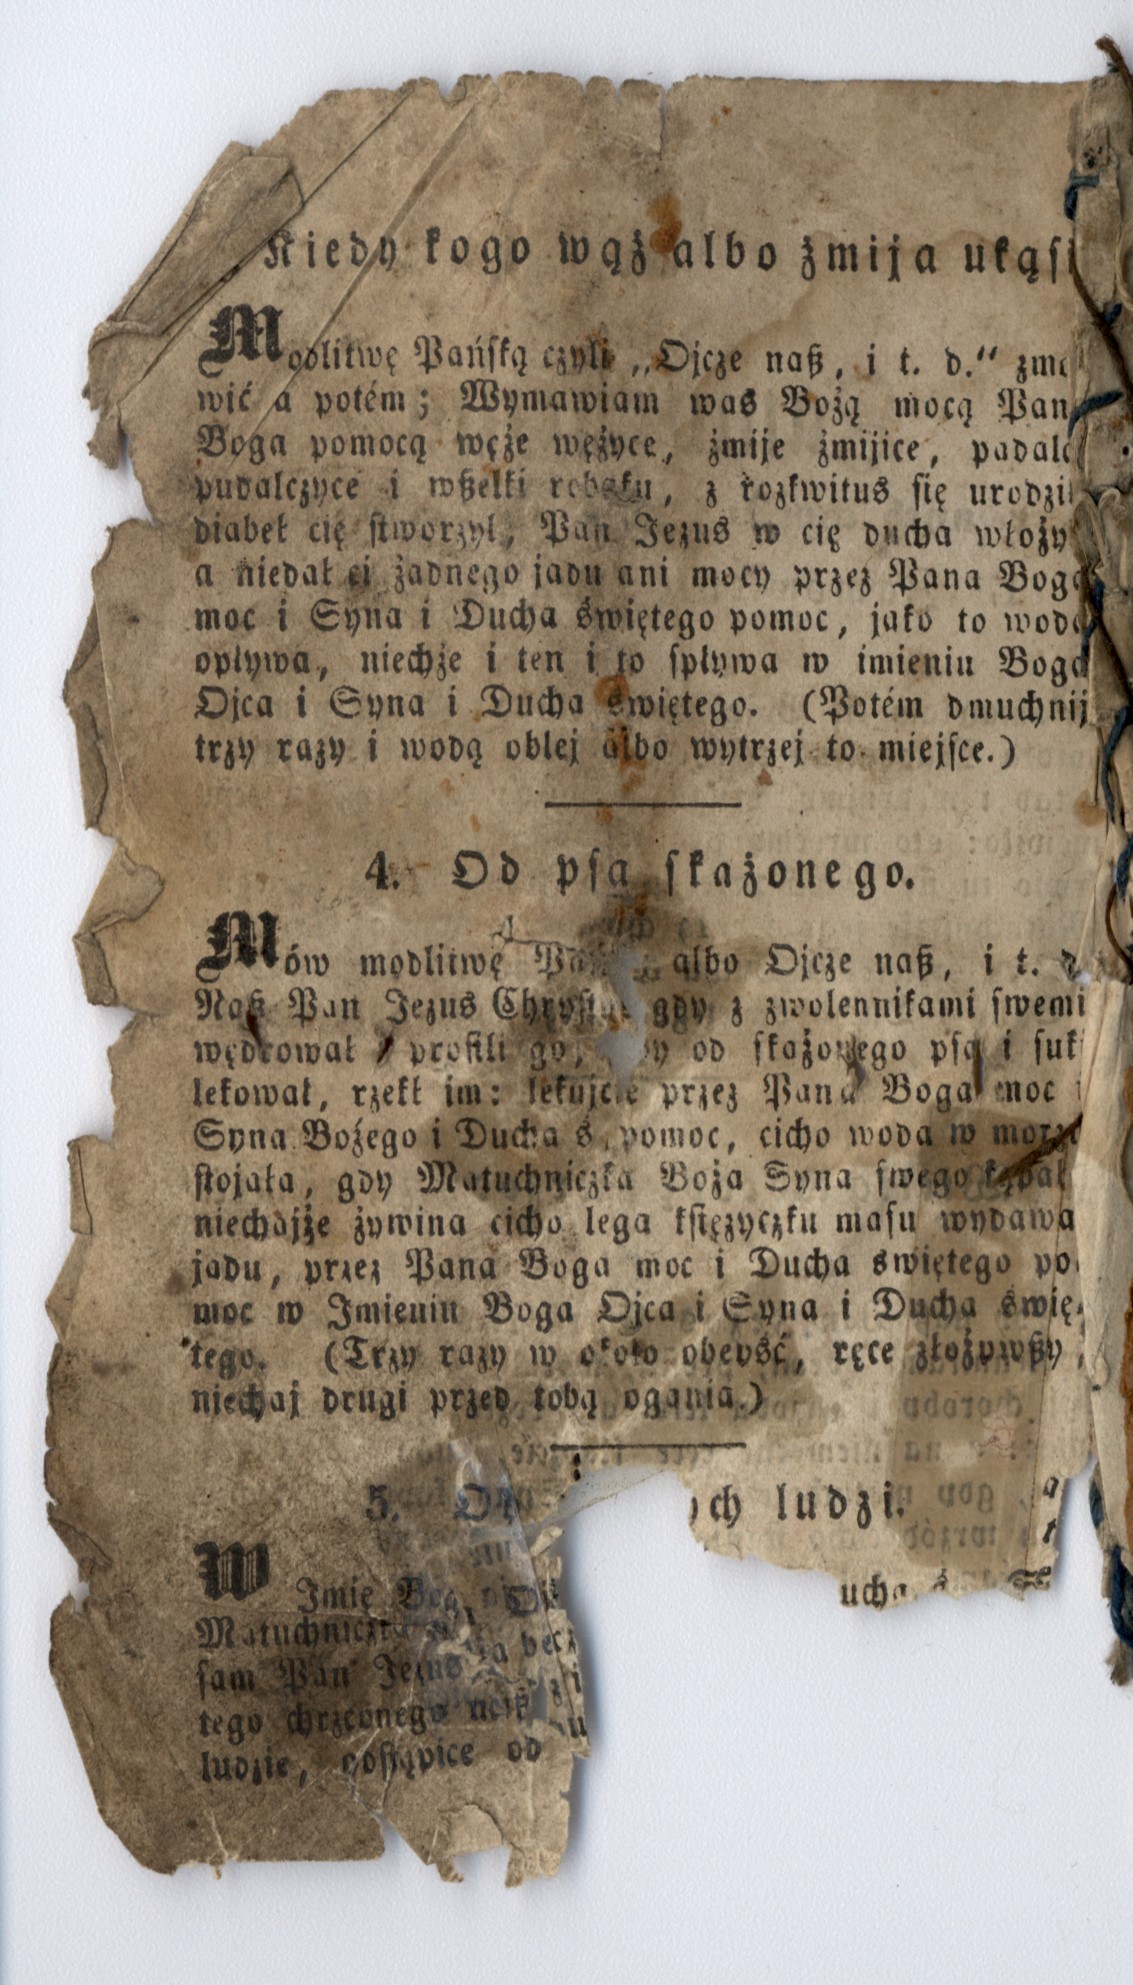 Kiedy kogo wąż albo żmija ukąsi
Modlitwę Pańską czyli „Ojcze naß, i t. d.“ zmó
wić a potém; Wymawiam was Bożą mocą Pan
Boga pomocą węże wężyce, żmije żmijice, padalc
pudalczyce i wßelki robaku, z rozkwitus się urodzi
diabeł cię stworzył, Pan Jezus w cię ducha włoży
a niedał ci żadnego jadu ani mocy przez Pana Boga
moc i Syna i Ducha świętego pomoc, jako to woda
opływa, niechże i ten i to spływa w imieniu Boga
Ojca i Syna i Ducha świętego. (Potém dmuchnij
trzy razy i wodą oblej albo wytrzej to miejsce.)
4. Od psa skażonego.
Mów modlitwę albo Ojcze naß, i t. d
Naß Pan Jezus gdy z zwolennikami swemi
wędrował prosili go, od skażonego psa i suki
lekował, rzekł im: lekujcie przez Pana Boga moc i
Syna Bożego i Ducha ś. pomoc, cicho woda w morzu
stojała, gdy Matuchniczka Boża Syna swego kąpał
niechajże żywina cicho lega księżyczku masu wydawa
jadu, przez Pana Boga moc i Ducha świętego po
moc w Imieniu Boga Ojca i Syna i Ducha świę
tego. (Trzy razy w około obejść, ręce złożywßy,
niechaj drugi przed tobą ogania.)
5. Od ych ludzi.
W Imię ucha
Matuchniczka
sam Pan Jezus
tego chrzconego
ludzie, odstąpice od